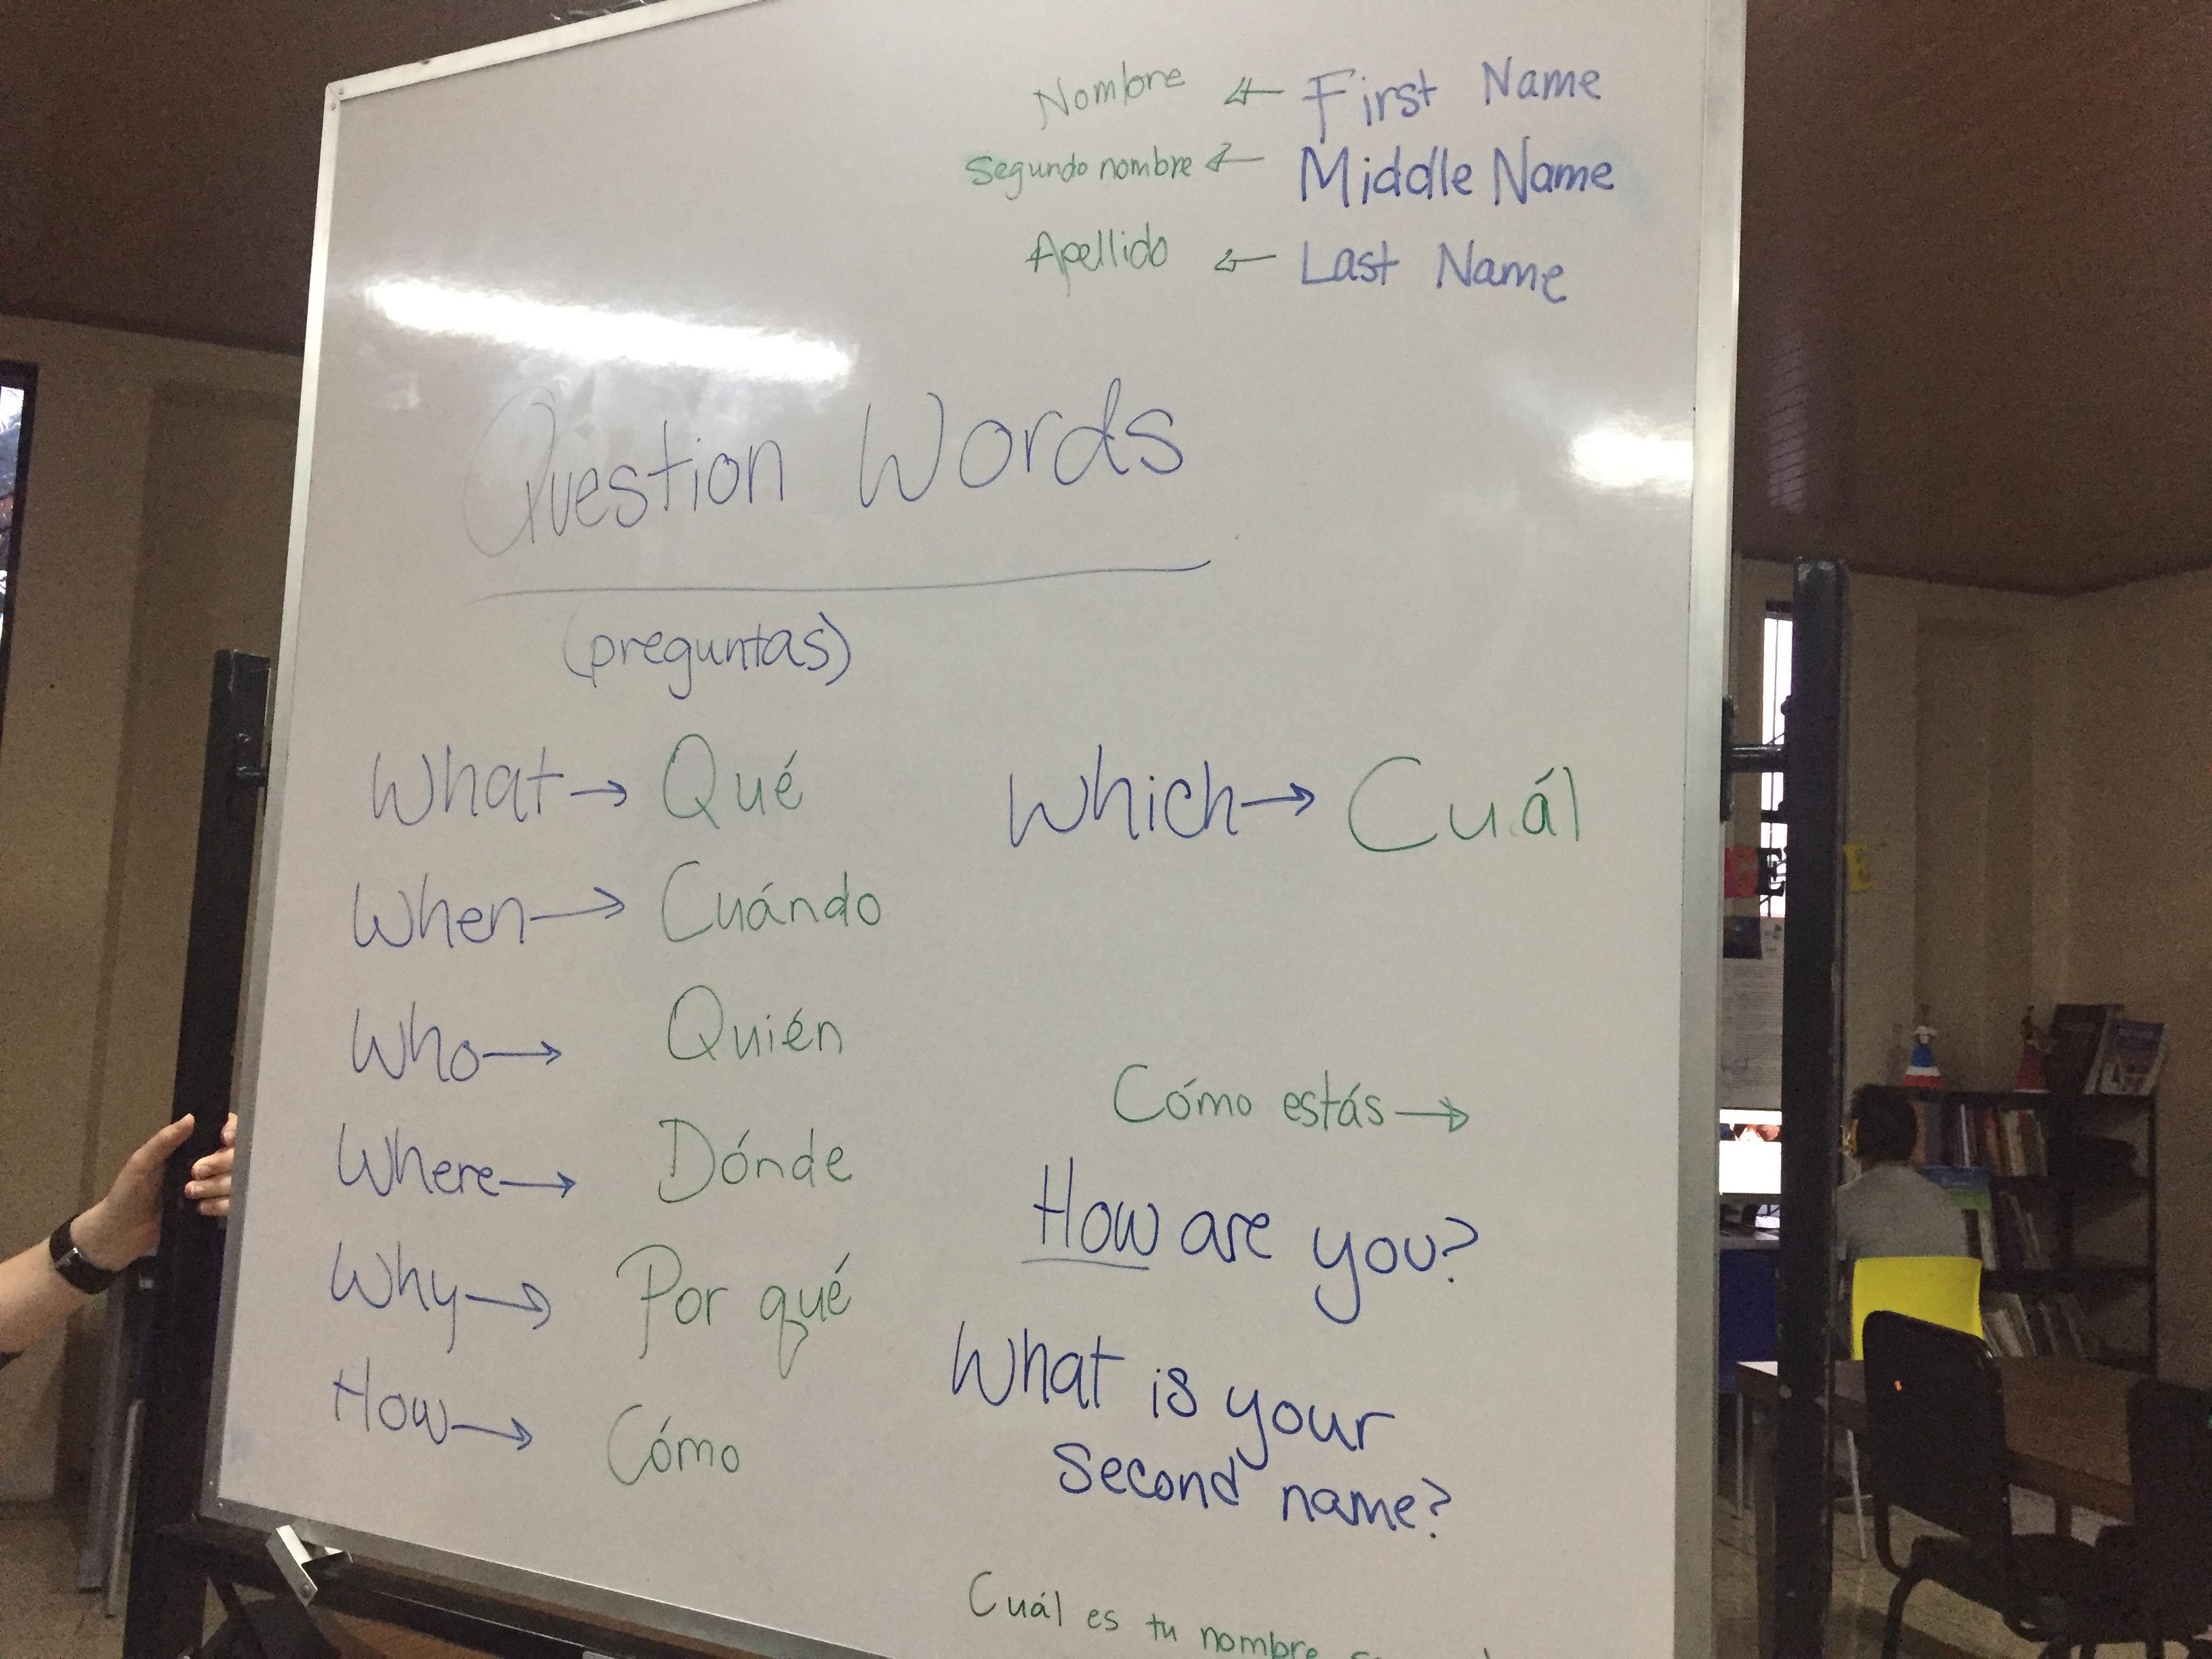 Nombre ← First Name
Segundo nombre ← Middle Name
Apellido ← Last Name
Question Words
(preguntas)
What → Qué
Which → Cuál
When → Cuándo
Who → Quién
Where → Dónde
Why → Por qué
How → Cómo
Cómo estás →
How are you?
What is your
second name?
Cuál es tu nombre